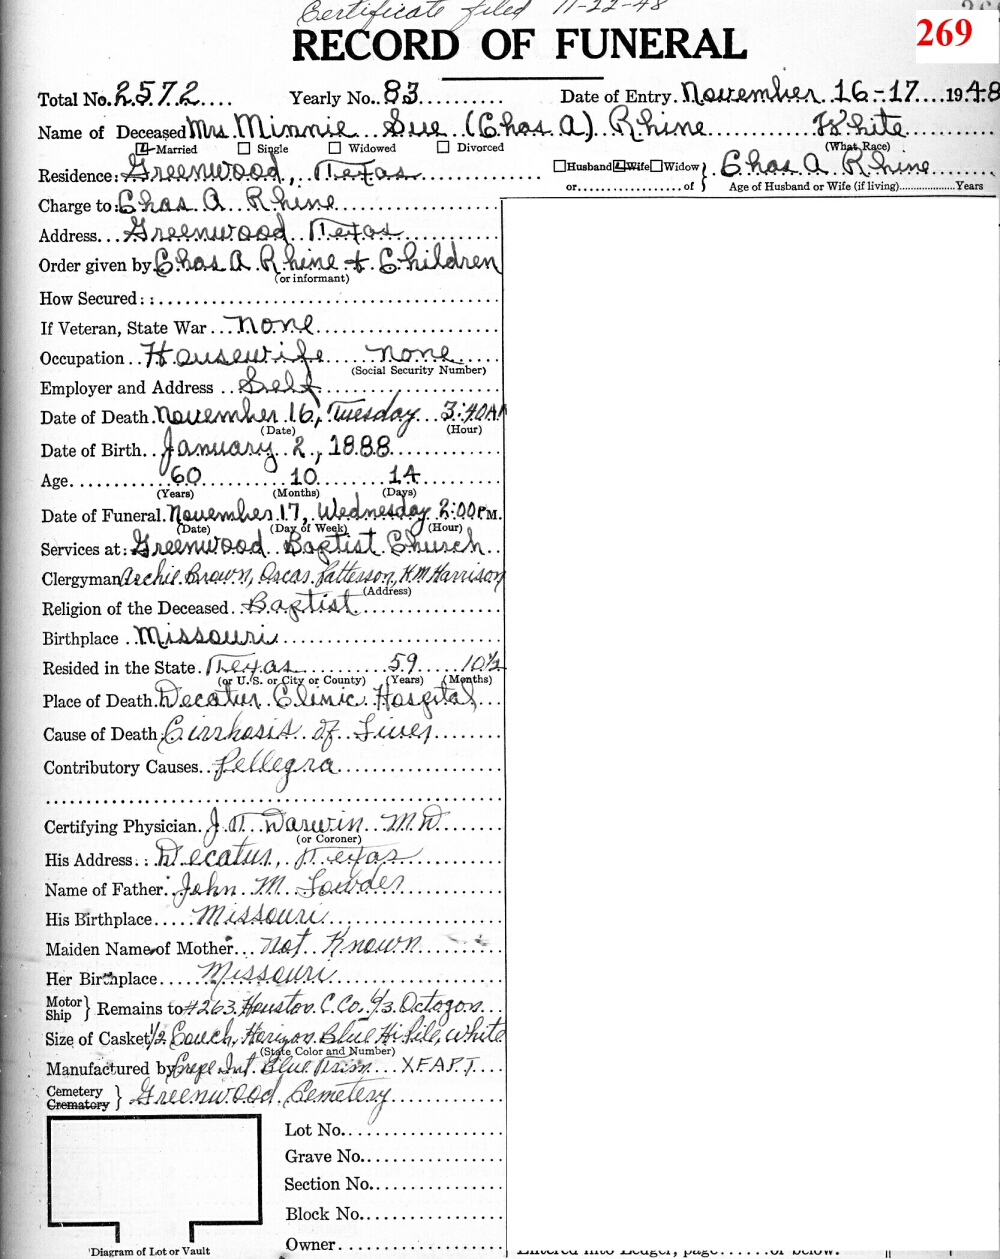 Certificate filed 11-22-48
269
RECORD OF FUNERAL
Total No. 2572 Yearly No. 83 Date of Entry November 16-17 1948
Name of Deceased Mrs. Minnie Sue (Chas. A.) Rhine White
(What Race)
Married Single Widowed Divorced
Residence: Greenwood, Texas
Husband Wife Widow } Chas A. Rhine
or of Age of Husband or Wife (if living) Years
Charge to: Chas A. Rhine
Address Greenwood Texas
Order given by Chas A. Rhine + Children
(or informant)
How Secured:
If Veteran, State War none
Occupation Housewife none
(Social Security Number)
Employer and Address Self
Date of Death November 16, Tuesday 3:40 AM
(Date) (Hour)
Date of Birth January 2, 1888
Age 60 10 14
(Years) (Months) (Days)
Date of Funeral November 17, Wednesday 2:00 P.M.
(Date) (Day of Week) (Hour)
Services at: Greenwood Baptist Church
Clergyman Archie Brown, Oscar Patterson, K.M. Harrison
(Address)
Religion of the Deceased Baptist
Birthplace Missouri
Resided in the State Texas 59 10½
(or U.S. or City or County) (Years) (Months)
Place of Death Decatur Clinic Hospital
Cause of Death Cirrhosis of Liver
Contributory Causes Pellegra
Certifying Physician J. T. Darwin M.D.
(or Coroner)
His Address: Decatur, Texas
Name of Father John M. Lowder
His Birthplace Missouri
Maiden Name of Mother Not Known
Her Birthplace Missouri
Motor
Ship } Remains to #263 Houston C. Co. 6/3 Octogon
Size of Casket ½ Couch, Horizon Blue Hi Pile, white
(State Color and Number)
Manufactured by Crepe Int. Blue Trim XFAPT
Cemetery
Crematory } Greenwood Cemetery
Lot No.
Grave No.
Section No.
Block No.
Owner
Diagram of Lot or Vault
Entered into Ledger, page or below.